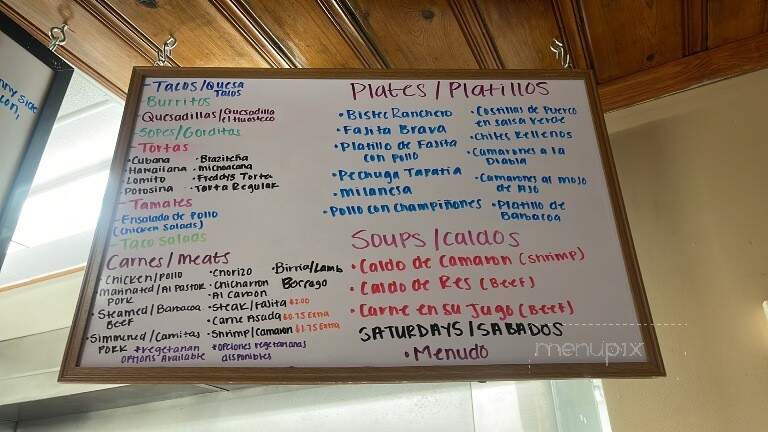 nny side
con,
- Tacos/Quesa Tacos
- Burritos
- Quesadillas/Quesadilla el Huasteco
- Sopes/Gorditas
- Tortas
• Cubana
• Hawaiiana
• Lomito
• Potosina
• Brazileña
• michoacana
• Freddys Torta
• Torta Regular
- Tamales
- Ensalada de Pollo
(Chicken Salads)
- Taco Salads
Carnes/meats
• Chicken/Pollo
• marinated/Al Pastor
Pork
• Steamed/Barbacoa
Beef
• Simmered/Carnitas
Pork
• Chorizo
• Chicharron
• Al Carbon
• Steak/Fajita $2.00
• Carne Asada $0.75 Extra
• Shrimp/Camaron $1.75 Extra
• Birria/Lamb
Borrego
*vegetarian
options Available
*opciones vegetarianas
disponibles
Plates/Platillos
• Bistec Ranchero
• Fajita Brava
• Platillo de Fajita
con Pollo
• Pechuga Tapatia
• milanesa
• Pollo con Champiñones
• Costillas de Puerco
en salsa verde
• Chiles Rellenos
• Camarones a la
Diabla
• Camarones al mojo
de Ajo
• Platillo de
Barbacoa
Soups/Caldos
• Caldo de Camaron (Shrimp)
• Caldo de Res (Beef)
• Carne en su Jugo (Beef)
SATURDAYS/SABADOS
• Menudo
menupix